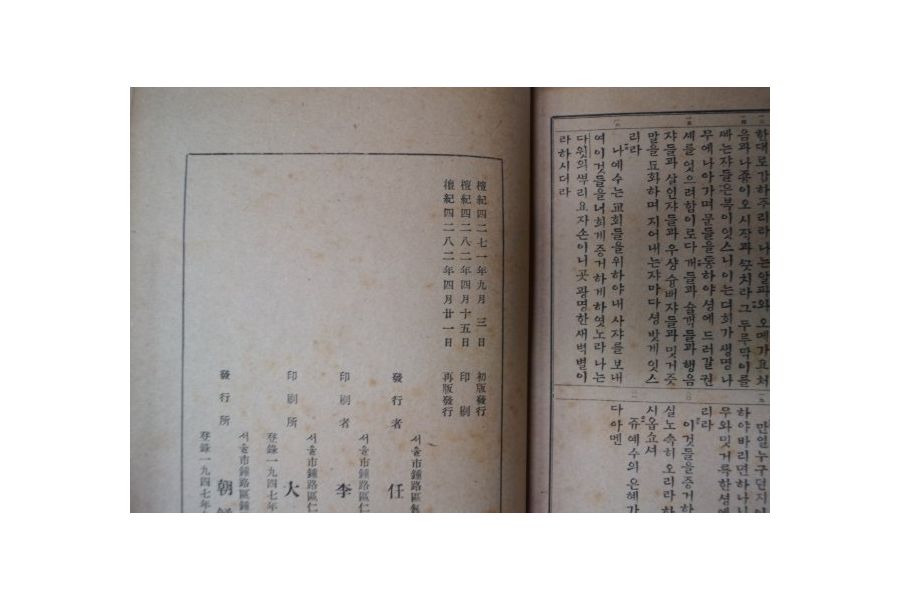 한대로갑하주리라나는알파와오메가요처
음과나죵이오시작과끗치라그두루막이를
빠는쟈들은복이잇스니이는뎌희가생명나
무에나아가며문들을통하야셩에드러갈권
셰를엇으려함이로다개들과술객들과행음
쟈들과살인쟈들과우샹숭배쟈들과밋거즛
말을됴화하며지어내는쟈마다셩밧게잇스
리라
나예수는교회들을위하야내사쟈를보내
여이것들을너희게증거하게하엿노라나는
다윗의뿌리요자손이니곳광명한새벽별이
라하시더라
만일누구던지
하야바리면하나
우와밋거륵한셩에
리라
이것들을증거하
실노속히오리라하
시옵쇼셔
쥬예수의은혜가
다아멘
檀紀四二七一年九月 三日 初版發行
檀紀四二八二年四月十五日 印刷
檀紀四二八二年四月廿一日 再版發行
서울市鍾路區
發行者 任
서울市鍾路區仁
印刷者 李
서울市鍾路區仁
印刷所 大
登錄一九四七年
서울市鍾路區鍾
發行所 朝
登錄一九四七年